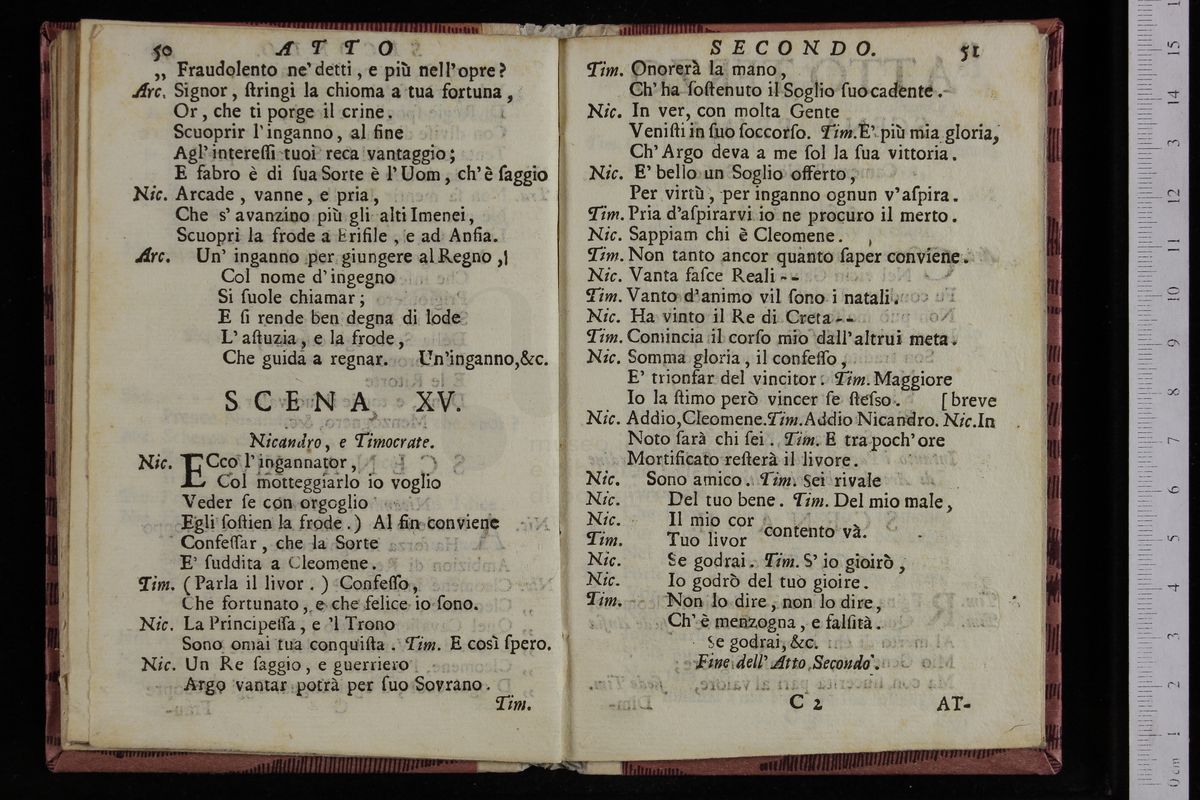 50 ATTO
„ Fraudolento ne' detti, e più nell'opre?
Arc. Signor, ſtringi la chioma a tua fortuna,
Or, che ti porge il crine.
Scuoprir l'inganno, al fine
Agl'intereſſi tuoi reca vantaggio;
E fabro è di ſua Sorte è l'Uom, ch'è ſaggio
Nic. Arcade, vanne, e pria,
Che s'avanzino più gli alti Imenei,
Scuopri la frode a Erifile, e ad Anſia.
Arc. Un' inganno per giungere al Regno,
Col nome d'ingegno
Si ſuole chiamar;
E ſi rende ben degna di lode
L'aſtuzia, e la frode,
Che guida a regnar. Un'inganno,&c.
SCENA XV.
Nicandro, e Timocrate.
Nic. ECco l'ingannator,
Col motteggiarlo io voglio
Veder ſe con orgoglio
Egli ſoſtien la frode.) Al fin conviene
Confeſſar, che la Sorte
E' ſuddita a Cleomene.
Tim. (Parla il livor.) Confeſſo,
Che fortunato, e che felice io ſono.
Nic. La Principeſſa, e 'l Trono
Sono omai tua conquiſta. Tim. E così ſpero.
Nic. Un Re ſaggio, e guerriero
Argo vantar potrà per ſuo Sovrano.
Tim.
SECONDO. 51
Tim. Onorerà la mano,
Ch'ha ſoſtenuto il Soglio ſuo cadente.
Nic. In ver, con molta Gente
Veniſti in ſuo ſoccorſo. Tim. E' più mia gloria,
Ch'Argo deva a me ſol la ſua vittoria.
Nic. E' bello un Soglio offerto,
Per virtù, per inganno ognun v'aſpira.
Tim. Pria d'aſpirarvi io ne procuro il merto.
Nic. Sappiam chi è Cleomene.
Tim. Non tanto ancor quanto ſaper conviene.
Nic. Vanta faſce Reali--
Tim. Vanto d'animo vil ſono i natali.
Nic. Ha vinto il Re di Creta--
Tim. Comincia il corſo mio dall'altrui meta.
Nic. Somma gloria, il confeſſo,
E' trionfar del vincitor. Tim. Maggiore
Io la ſtimo però vincer ſe ſteſso. [breve
Nic. Addio, Cleomene. Tim. Addio Nicandro. Nic. In
Noto ſarà chi ſei. Tim. E tra poch'ore
Mortificato reſterà il livore.
Nic. Sono amico. Tim. Sei rivale
Nic. Del tuo bene. Tim. Del mio male,
Nic. Il mio cor
Tim. Tuo livor contento và.
Nic. Se godrai. Tim. S'io gioirò,
Nic. Io godrò del tuo gioire.
Tim. Non lo dire, non lo dire,
Ch'è menzogna, e falſità.
Se godrai, &c.
Fine dell'Atto Secondo.
C 2 AT-